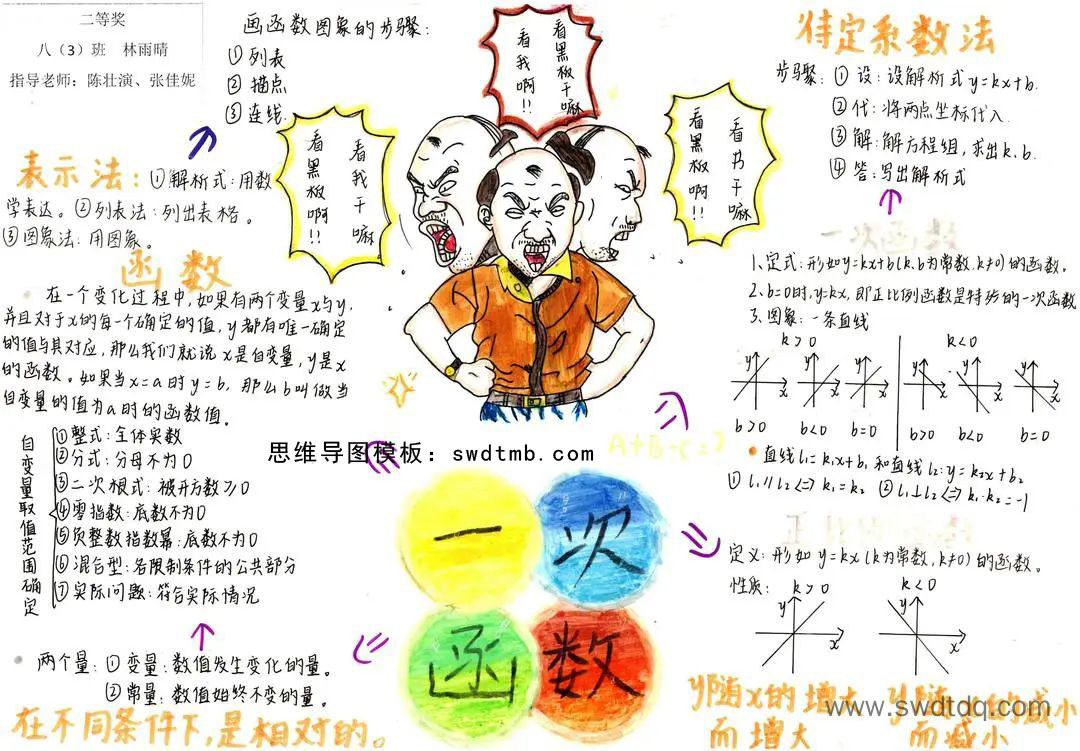 二等奖
八（3）班 林雨晴
指导老师：陈壮演、张佳妮
画函数图象的步骤：
① 列表
② 描点
③ 连线.
看我干嘛
看黑板啊!!
看黑板干嘛
看我啊!!
看书干嘛
看黑板啊!!
待定系数法
步骤：① 设：设解析式 y=kx+b.
② 代：将两点坐标代入.
③ 解：解方程组，求出k、b.
④ 答：写出解析式
表示法：①解析式：用数
学表达。②列表法：列出表格。
③图象法：用图象。
函数
在一个变化过程中，如果有两个变量x与y，
并且对于x的每一个确定的值，y都有唯一确定
的值与其对应，那么我们就说x是自变量，y是x
的函数。如果当x=a时y=b，那么b叫做当
自变量的值为a时的函数值。
自变量取值范围确定
①整式：全体实数
②分式：分母不为0
③二次根式：被开方数≥0
④零指数：底数不为0
⑤负整数指数幂：底数不为0
⑥混合型：各限制条件的公共部分
⑦实际问题：符合实际情况
两个量：① 变量：数值发生变化的量。
② 常量：数值始终不变的量。
在不同条件下，是相对的。
思维导图模板：swdtmb.com
一次
函数
一次函数
1、定式：形如y=kx+b(k、b为常数，k≠0)的函数。
2、b=0时，y=kx，即正比例函数是特殊的一次函数
3、图象：一条直线
k>0 k<0
y x y x y x y x y x y x
b>0 b<0 b=0 b>0 b<0 b=0
直线l₁=k₁x+b₁ 和直线l₂：y=k₂x+b₂
① l₁∥l₂<=>k₁=k₂ ② l₁⊥l₂<=>k₁·k₂=-1
定义：形如 y=kx (k为常数，k≠0)的函数。
性质： k>0 k<0
y x y x
y随x的增大
而增大
y随 的减小
而减小
www.swdtdq.com